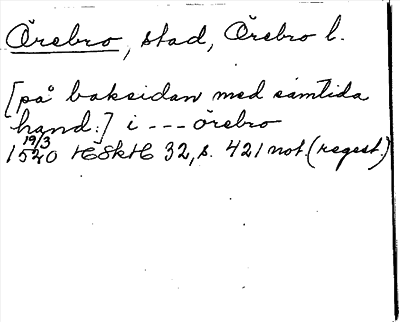 Örebro, stad, Örebro l.
[på baksidan med samtida
hand:] i --- örebro
19/3
1520 HSkH 32, s. 421 not. (regest.)